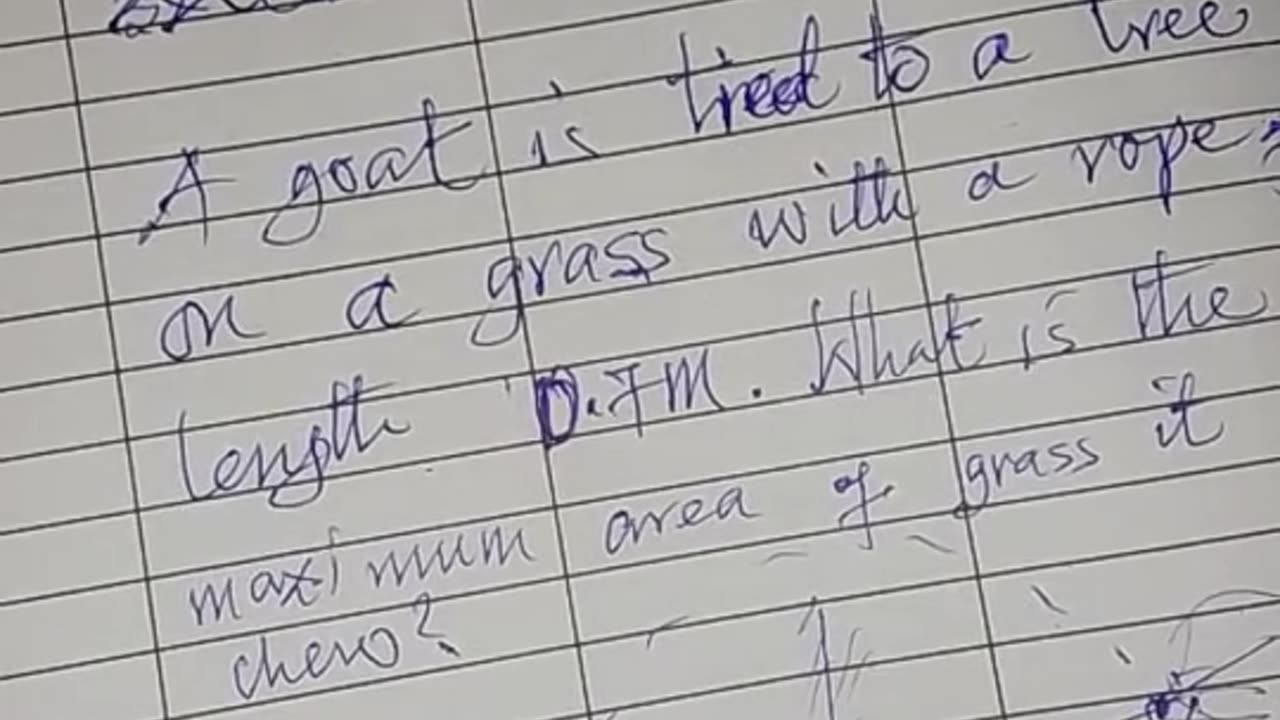 A goat is tied to a tree
on a grass with a rope
length 0.7M. What is the
maximum area of grass it
chew?